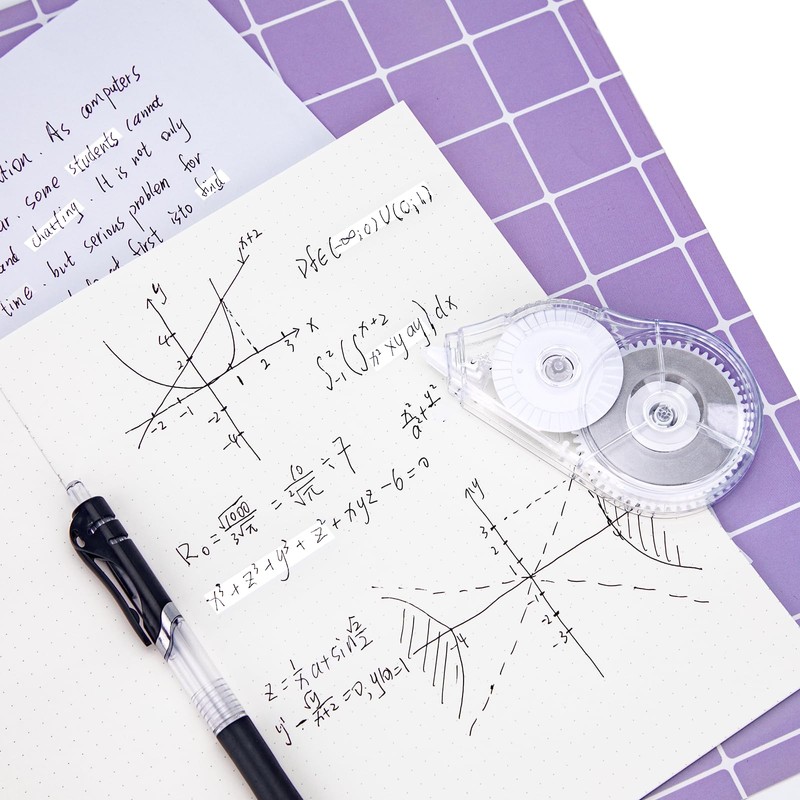 ution. As computers
ur. some students cannot
and chatting. It is not only
time. but serious problem for
first is to find
Df∈(-∞;0)∪(0;1)
y
x+2
x
4
2
-2
-4
-2 -1 1 2 3
∫²₋₁(∫ˣ⁺²ₓ² xy dy)dx
x²/a²+y²/
R₀=√1000/3√π = 10/²√π ÷7
x³+z³+y³+z²+xyz-6=0
y
3
2
1
-1
-2
-3
-4
4
z=1/x a+sin √2/2
y'-√y/x+2=0,y(0)=1